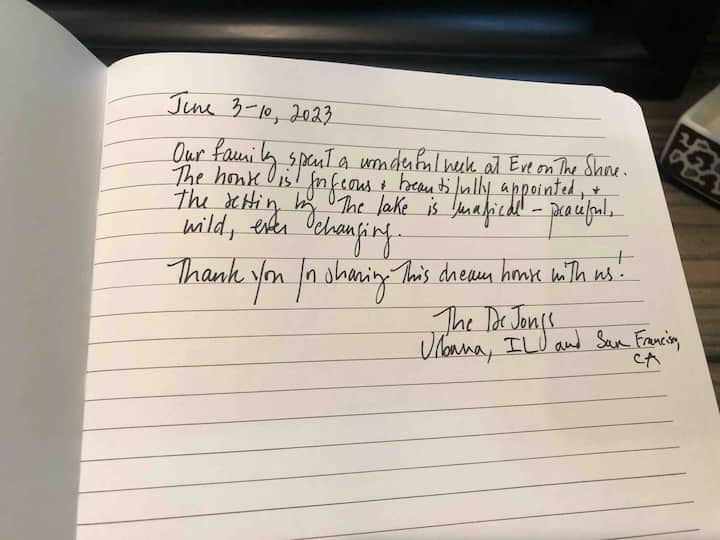 June 3-10, 2023
Our family spent a wonderful week at Eve on The Shore.
The house is gorgeous + beautifully appointed, +
the setting by The lake is magical - peaceful,
wild, ever changing.
Thank you for sharing This dream house with us!
The De Jongs
Urbana, IL and San Francisco,
CA